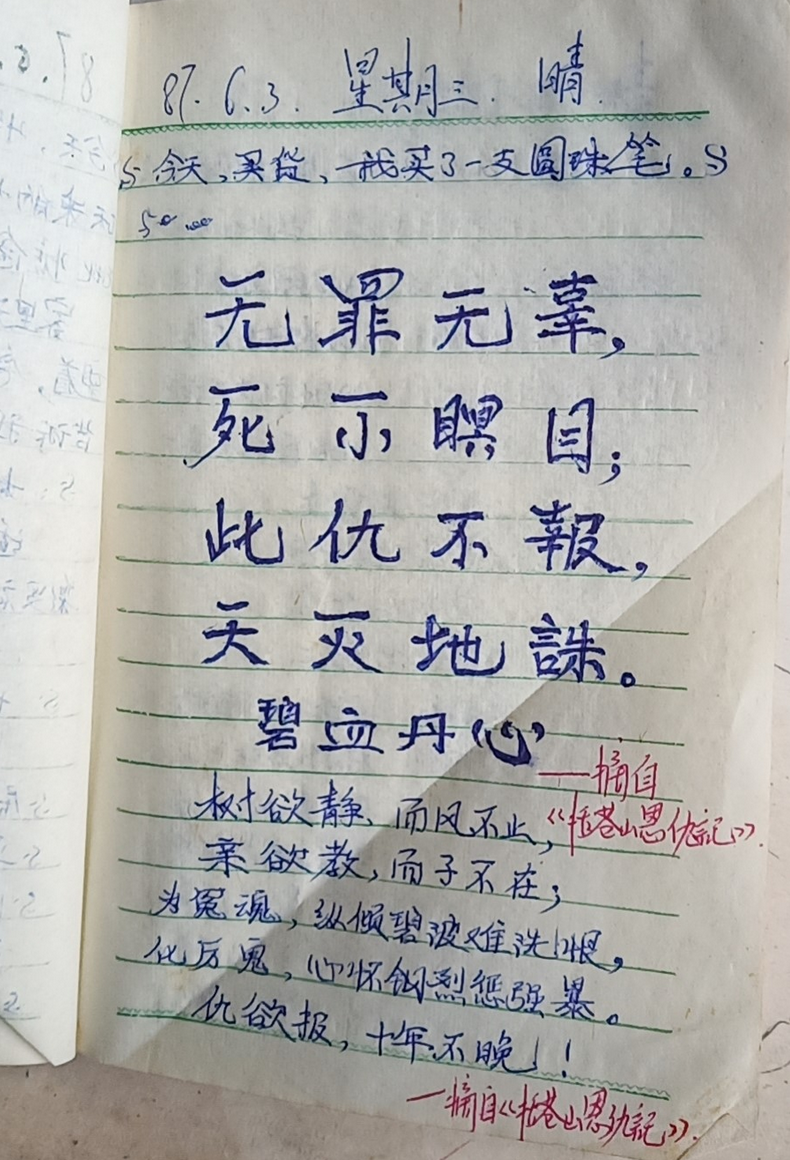 87.6.3. 星期三. 晴.
S 今天,买货,我买了一支圆珠笔。S
无罪无辜,
死不瞑目;
此仇不報,
天灭地誅。
碧血丹心
——摘自
《括苍山恩仇記》.
树欲静,而风不止,
亲欲教,而子不在;
为冤魂,纵倾碧波难洗恨,
化厉鬼,心怀钢烈惩强暴。
仇欲报,十年不晚!!
—摘自《括苍山恩仇記》.